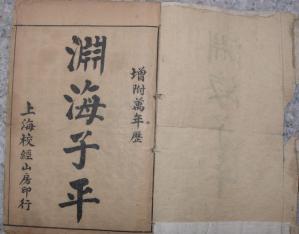 增附萬年歷
淵海子平
上海校經山居印行